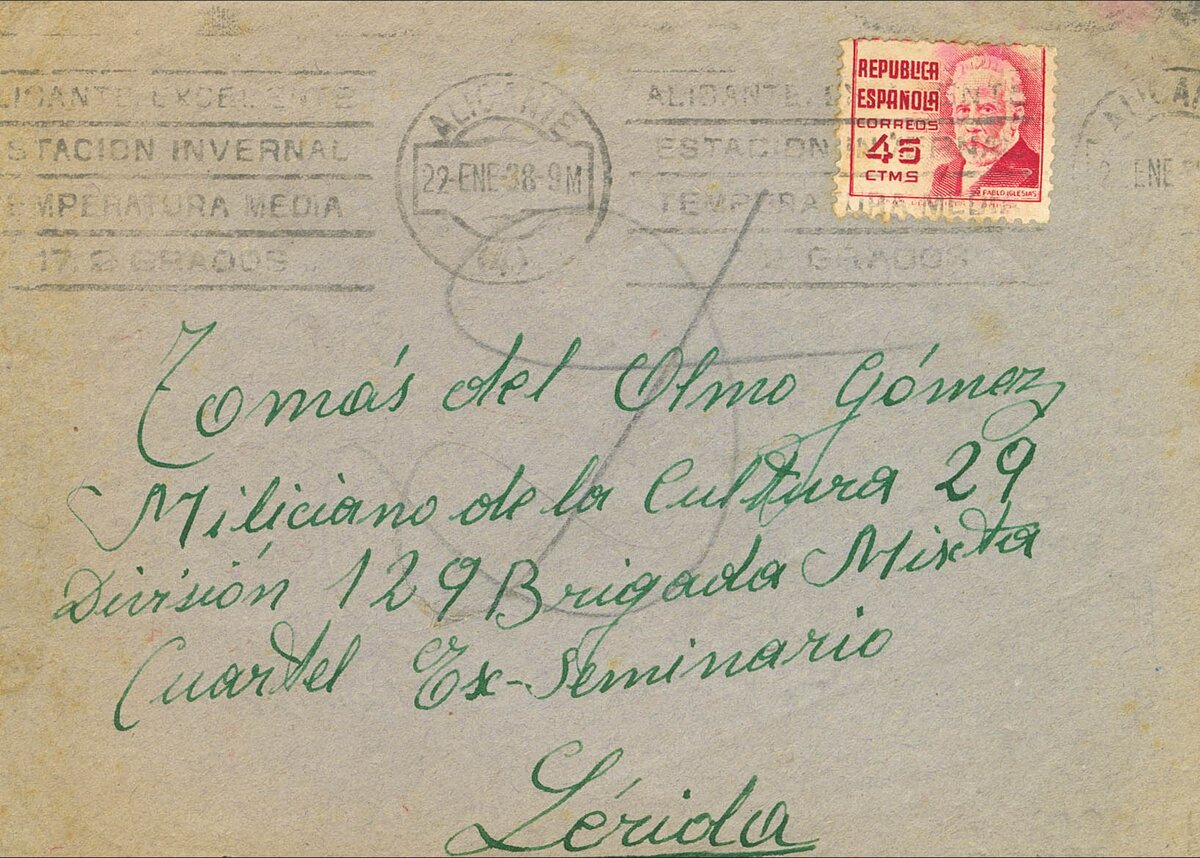 LICANTE, EXCELENTE
STACION INVERNAL
EMPERATURA MEDIA
17, 2 GRADOS
ALICANTE
22-ENE-38-9M
ALICANTE, EX
ESTACION INVERNAL
TEMPERATURA MEDIA
2 GRADOS
REPUBLICA
ESPAÑOLA
CORREOS
45
CTMS
PABLO IGLESIAS
ALICA
ENE
Tomás del Olmo Gómez
Miliciano de la Cultura 29
División 129 Brigada Mixta
Cuartel Ex-Seminario
Lérida